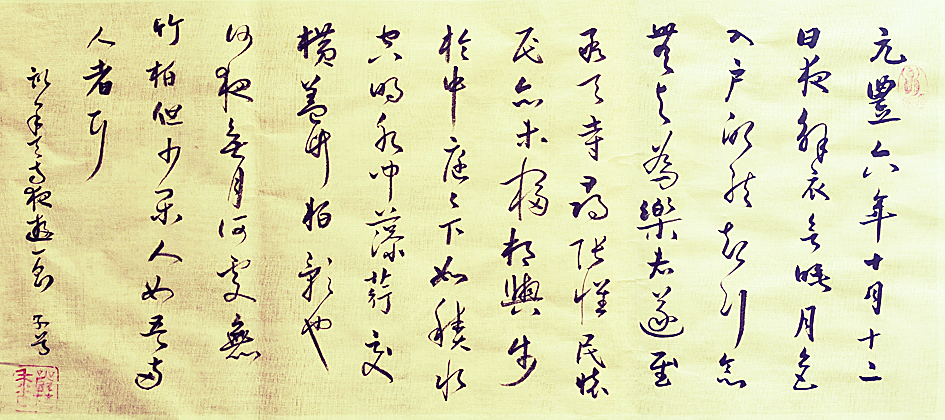 元豐六年十月十二
日夜解衣欲睡月色
入戶欣然起行念
無與為樂者遂至
承天寺尋張懷民懷
民亦未寢相與步
於中庭々下如積水
空明水中藻荇交
橫蓋竹柏影也
何夜無月何處無
竹柏但少閑人如吾兩
人者耳
記承天寺夜遊一則